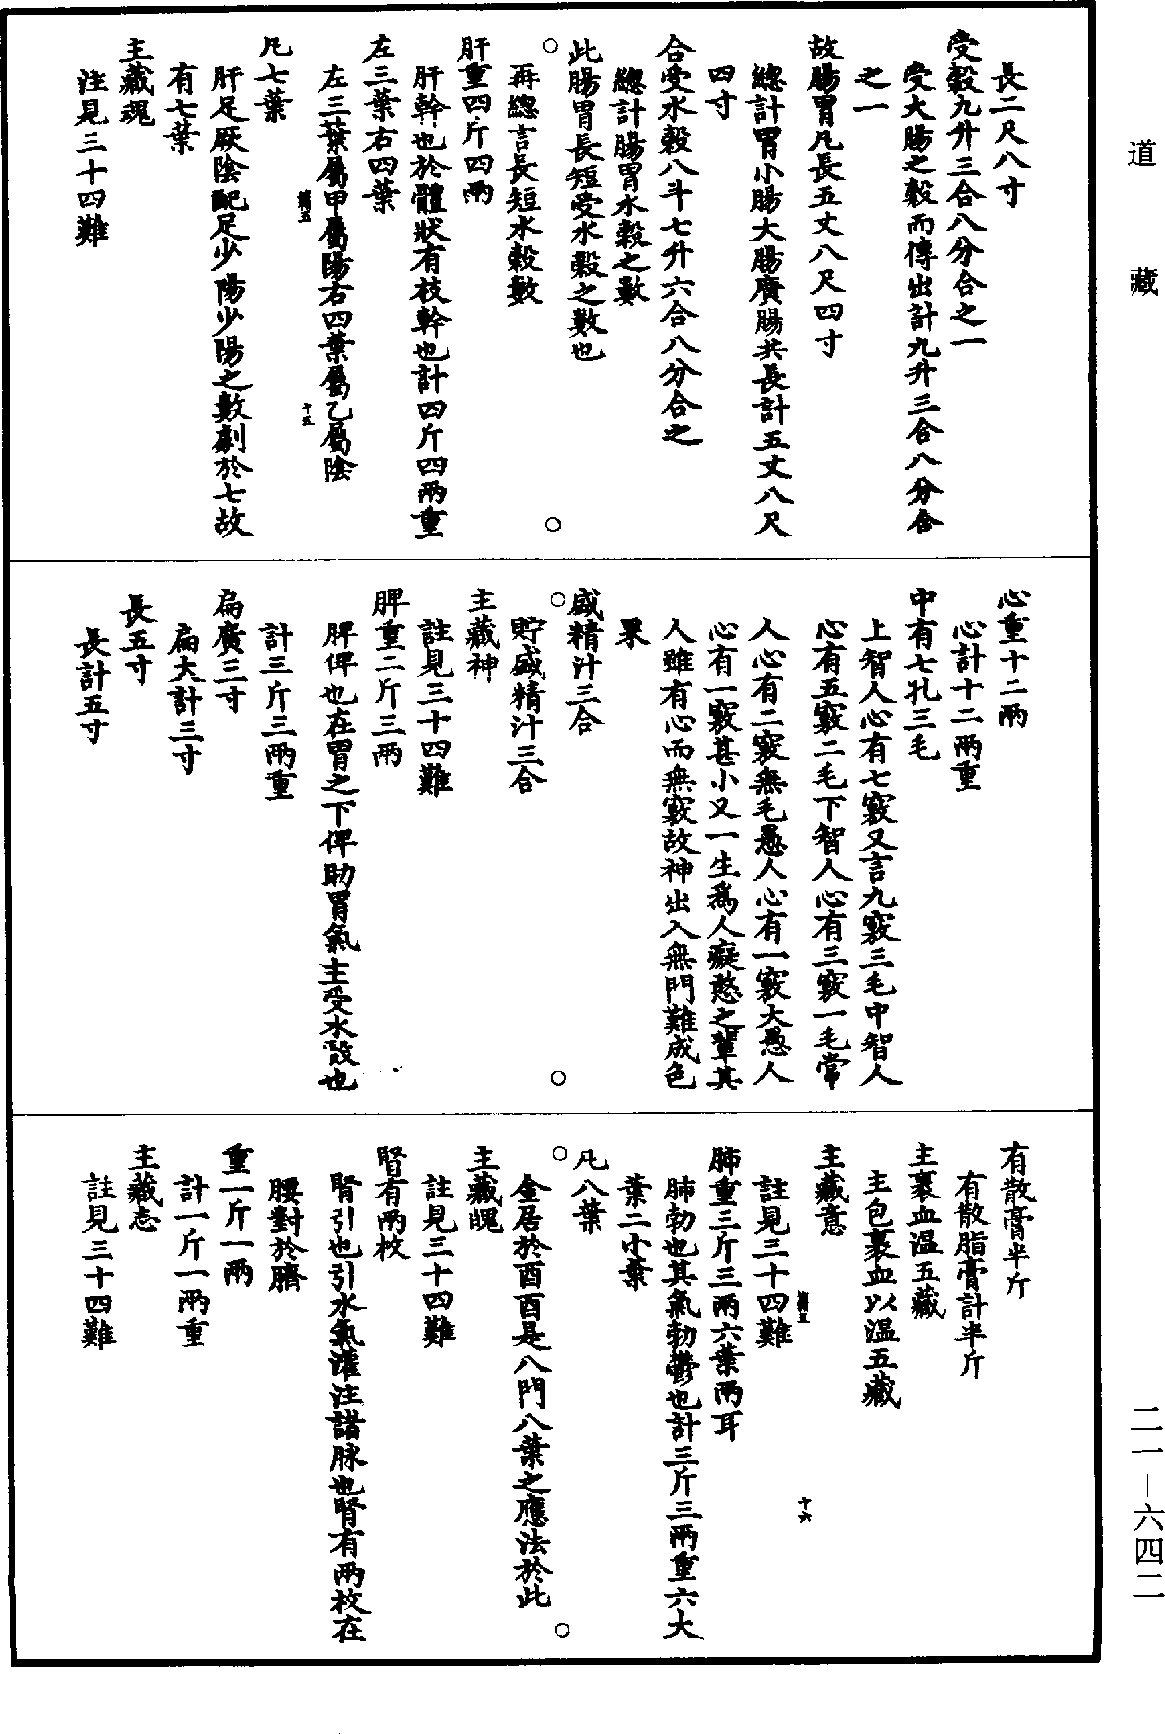 道藏
長二尺八寸
受穀九升三合八分合之一
受大腸之穀而傳出計九升三合八分合
之一
故腸胃凡長五丈八尺四寸
總計胃小腸大腸廣腸共長計五丈八尺
四寸
合受水穀八斗七升六合八分合之
總計腸胃水穀之數
此腸胃長短受水穀之數也
○
再總言長短水穀數
○
肝重四斤四兩
肝幹也於體狀有枝幹也計四斤四兩重
左三葉右四葉
左三葉屬甲屬陽右四葉屬乙屬陰
十五
凡七葉
肝足厥陰配足少陽少陽之數劇於七故
有七葉
主藏魂
注見三十四難
心重十二兩
心計十二兩重
中有七孔三毛
上智人心有七竅又言九竅三毛中智人
心有五竅二毛下智人心有三竅一毛常
人心有二竅無毛愚人心有一竅大愚人
心有一竅甚小又一生爲人癡憨之輩其
人雖有心而無竅故神出入無門難成色
果
盛精汁三合
○
貯盛精汁三合
○
主藏神
註見三十四難
脾重二斤三兩
脾俾也在胃之下俾助胃氣主受水穀也
計三斤三兩重
扁廣三寸
扁大計三寸
長五寸
長計五寸
有散膏半斤
有散脂膏計半斤
主裹血溫五藏
主包裹血以溫五藏
主藏意
十六
註見三十四難
肺重三斤三兩六葉兩耳
肺勃也其氣勃鬱也計三斤三兩重六大
葉二小葉
凡八葉
○
金居於酉酉是八門八葉之應法於此
○
主藏魄
註見三十四難
腎有兩枚
腎引也引水氣灌注諸脉也腎有兩枚在
腰對於臍
重一斤一兩
計一斤一兩重
主藏志
註見三十四難
二一—六四二